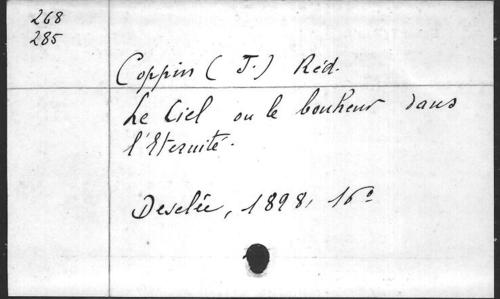 268
285
Coppin (J.) Réd.
Le Ciel ou le bonheur dans
l'Eternité.
Desclée, 1898, 16º